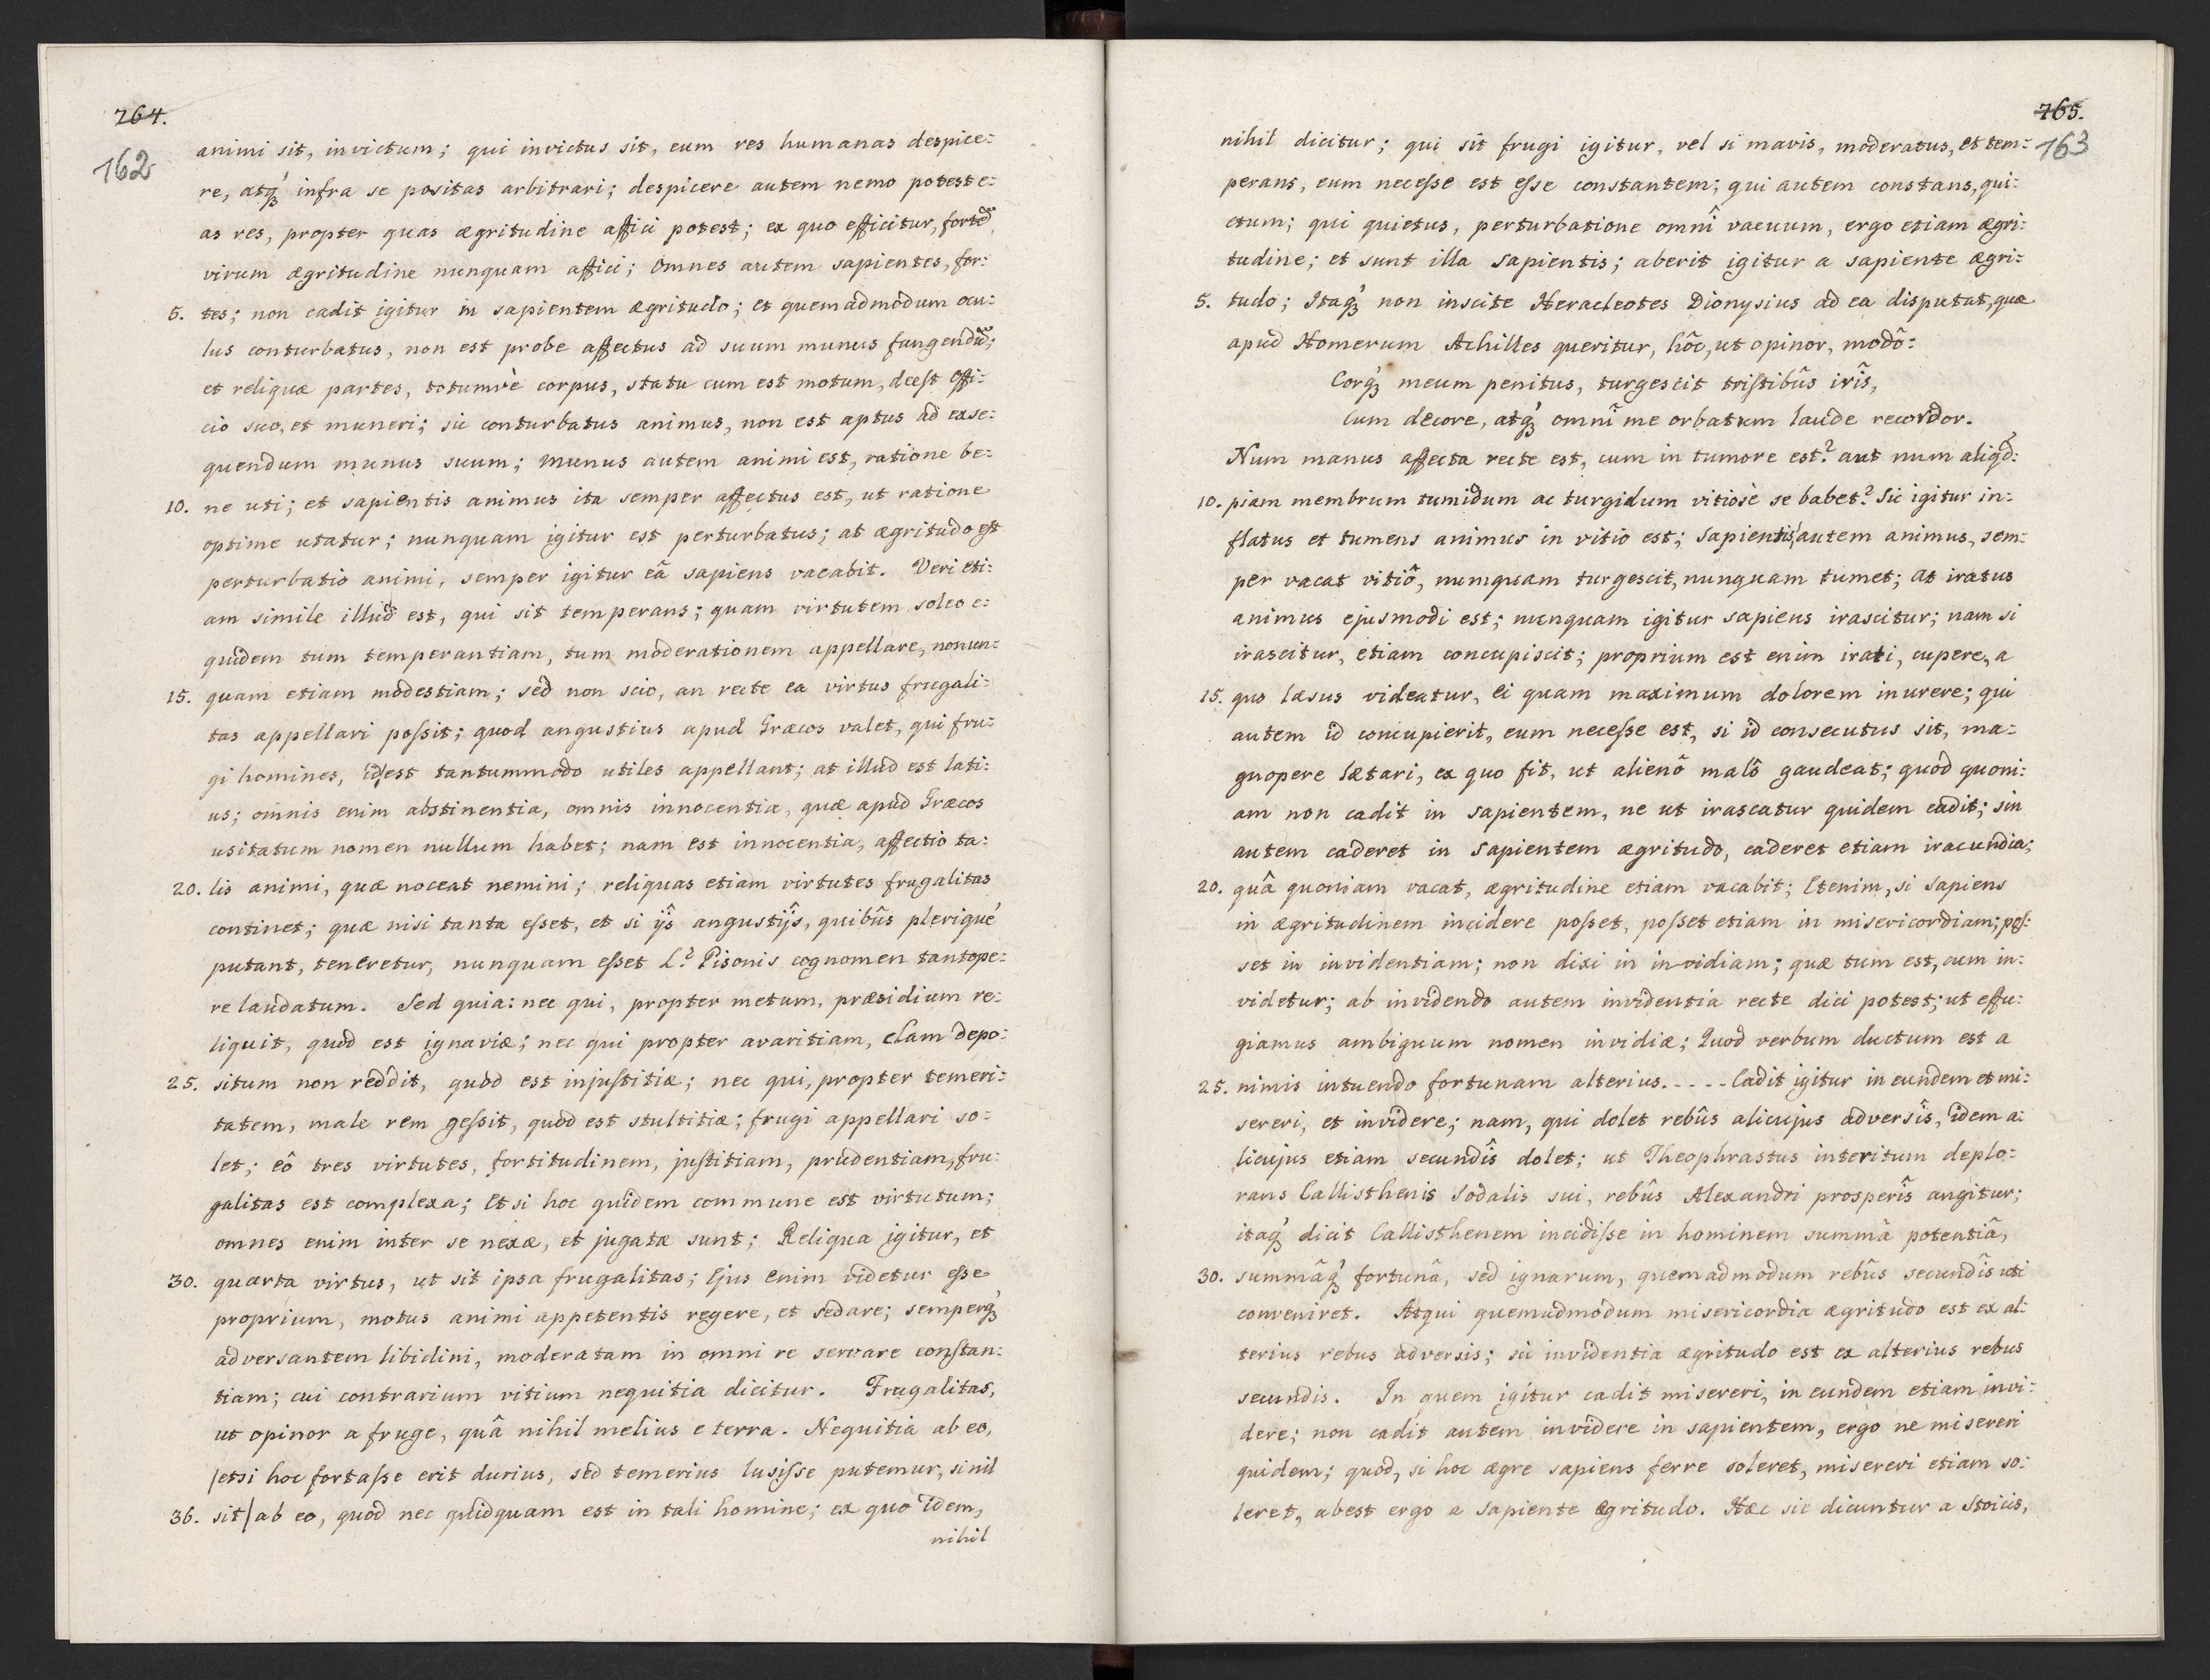 264.
162
animi sit, invictum; qui invictus sit, eum res humanas despice=
re, atq́ʒ infra se positas arbitrari; despicere autem nemo potest e=
as res, propter quas ægritudine affici potest; ex quo efficitur, forte͠
virum ægritudine nunquam affici; omnes autem sapientes, for=
5. tes; non cadit igitur in sapientem ægritudo; et quemadmodum ocu=
lus conturbatus, non est probe affectus ad suum munus fungendu͠;
et reliquæ partes, totumvè corpus, statu cum est motum, deest offi=
cio suo, et muneri; sic conturbatus animus, non est aptus ad exse=
quendum munus suum; munus autem animi est, ratione be=
10. ne uti; et sapientis animus ita semper affectus est, ut ratione
optime utatur; nunquam igitur est perturbatus; at ægritudo est
perturbatio animi, semper igitur eâ sapiens vacabit. Veri eti=
am simile illud est, qui sit temperans; quam virtutem soleo e=
quidem tum temperantiam, tum moderationem appellare, nonun=
15. quam etiam modestiam; sed non scio, an recte ea virtus frugali=
tas appellari poſsit; quod angustius apud Græcos valet, qui fru=
gi homines, id est tantummodo utiles appellant; at illud est lati=
us; omnis enim abstinentia, omnis innocentia, quæ apud Græcos
usitatum nomen nullum habet; nam est innocentia, affectio ta=
20. lis animi, quæ noceat nemini; reliquas etiam virtutes frugalitas
continet; quæ nisi tanta eſset, et si ijs angustijs, quibûs plerique
putant, teneretur, nunquam eſset L. Pisonis cognomen tantope=
re laudatum. Sed quia: nec qui, propter metum, præsidium re=
liquit, quod est ignaviæ; nec qui propter avaritiam, clam depo=
25. situm non reddit, quod est injuſtitiæ; nec qui, propter temeri=
tatem, male rem geſsit, quod est stultitiæ; frugi appellari so=
let; eô tres virtutes, fortitudinem, juſtitiam, prudentiam, fru=
galitas est complexa; Et si hoc quidem commune est virtutum;
omnes enim inter se nexæ, et jugatæ sunt; Reliqua igitur, et
30. quarta virtus, ut sit ipsa frugalitas; Ejus enim videtur eſse
proprium, motus animi appetentis regere, et sedare; semperq́ʒ
adversantem libidini, moderatam in omni re servare conſtan=
tiam; cui contrarium vitium nequitia dicitur. Frugalitas,
ut opinor a fruge, quâ nihil melius e terra. Nequitia ab eo,
/etsi hoc fortaſse erit durius, sed temerius lusiſse putemur, si nil
36. sit/ ab eo, quod nec quidquam est in tali homine; ex quo idem,
nihil
765.
163
nihil dicitur; qui sit frugi igitur, vel si mavis, moderatus, et tem=
perans, eum neceſse est eſse constantem; qui autem constans, qui=
etum; qui quietus, perturbatione omnî vacuum, ergo etiam ægri=
tudine; et sunt illa sapientis; aberit igitur a sapiente ægri=
5. tudo; Itaq́ʒ non inscite Heracleotes Dionysius ad ea disputat, quæ
apud Homerum Achilles queritur, hôc, ut opinor, modô:
Corq́ʒ meum penitus, turgescit triſtibûs irîs,
Cum decore, atq́ʒ omnî me orbatum laude recordor.
Num manus affecta recte est, cum in tumore est? aut num aliqd=
10. piam membrum tumidum ac turgidum vitiosè se habet? Sic igitur in=
flatus et tumens animus in vitio est; Sapientis autem animus, sem=
per vacat vitiô, numquam turgescit, nunquam tumet; at iratus
animus ejusmodi est; nunquam igitur sapiens irascitur; nam si
irascitur, etiam concupiscit; proprium est enim irati, cupere, a
15. quo læsus videatur, ei quam maximum dolorem inurere; qui
autem id concupierit, eum neceſse est, si id consecutus sit, ma=
gnopere lætari, ex quo fit, ut alienô malô gaudeat; quod quoni=
am non cadit in sapientem, ne ut irascatur quidem cadit; sin
autem caderet in sapientem ægritudo, caderet etiam iracundia;
20. quâ quoniam vacat, ægritudine etiam vacabit; Etenim, si sapiens
in ægritudinem incidere poſset, poſset etiam in misericordiam; poſ=
set in invidentiam; non dixi in invidiam; quæ tum est, cum in=
videtur; ab invidendo autem invidentia recte dici potest; ut effu=
giamus ambiguum nomen invidiæ; Quod verbum ductum est a
25. nimis intuendo fortunam alterius. - - - - - Cadit igitur in eundem et mi=
sereri, et invidere; nam, qui dolet rebûs alicujus adversîs, idem a=
licujus etiam secundîs dolet; ut Theophrastus interitum deplo=
rans Callisthenis sodalis sui, rebûs Alexandri prosperîs angitur;
itaq́ʒ dicit Callisthenem incidiſse in hominem summâ potentiâ,
30. summâq́ʒ fortunâ, sed ignarum, quemadmodum rebûs secundîs uti
conveniret. Atqui quemadmodum misericordia ægritudo est ex al=
terius rebus adversis; sic invidentia ægritudo est ex alterius rebus
secundis. In quem igitur cadit misereri, in eundem etiam invi=
dere; non cadit autem invidere in sapientem, ergo ne misereri
quidem; quod, si hoc ægre sapiens ferre soleret, misereri etiam so=
leret, abest ergo a sapiente ægritudo. Hæc sic dicuntur a Stoicis,